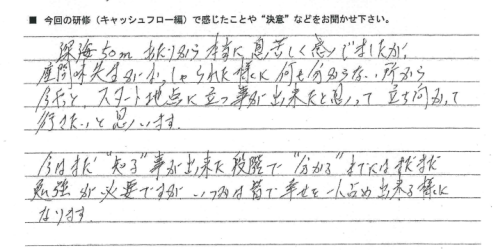 ■ 今回の研修（キャッシュフロー編）で感じたことや“決意”などをお聞かせ下さい。
深海50m あたりから 本当に 息苦しく 感じましたが
先生が おっしゃられた様に 何も分からない所から
スタート地点に立つ事が出来たと思って 立ち向かって
行きたいと思います。
今はまだ “知る” 事が出来た段階で “分かる” までにはまだまだ
勉強が必要ですが いつかは皆で幸せを一人占め出来る様に
なります。